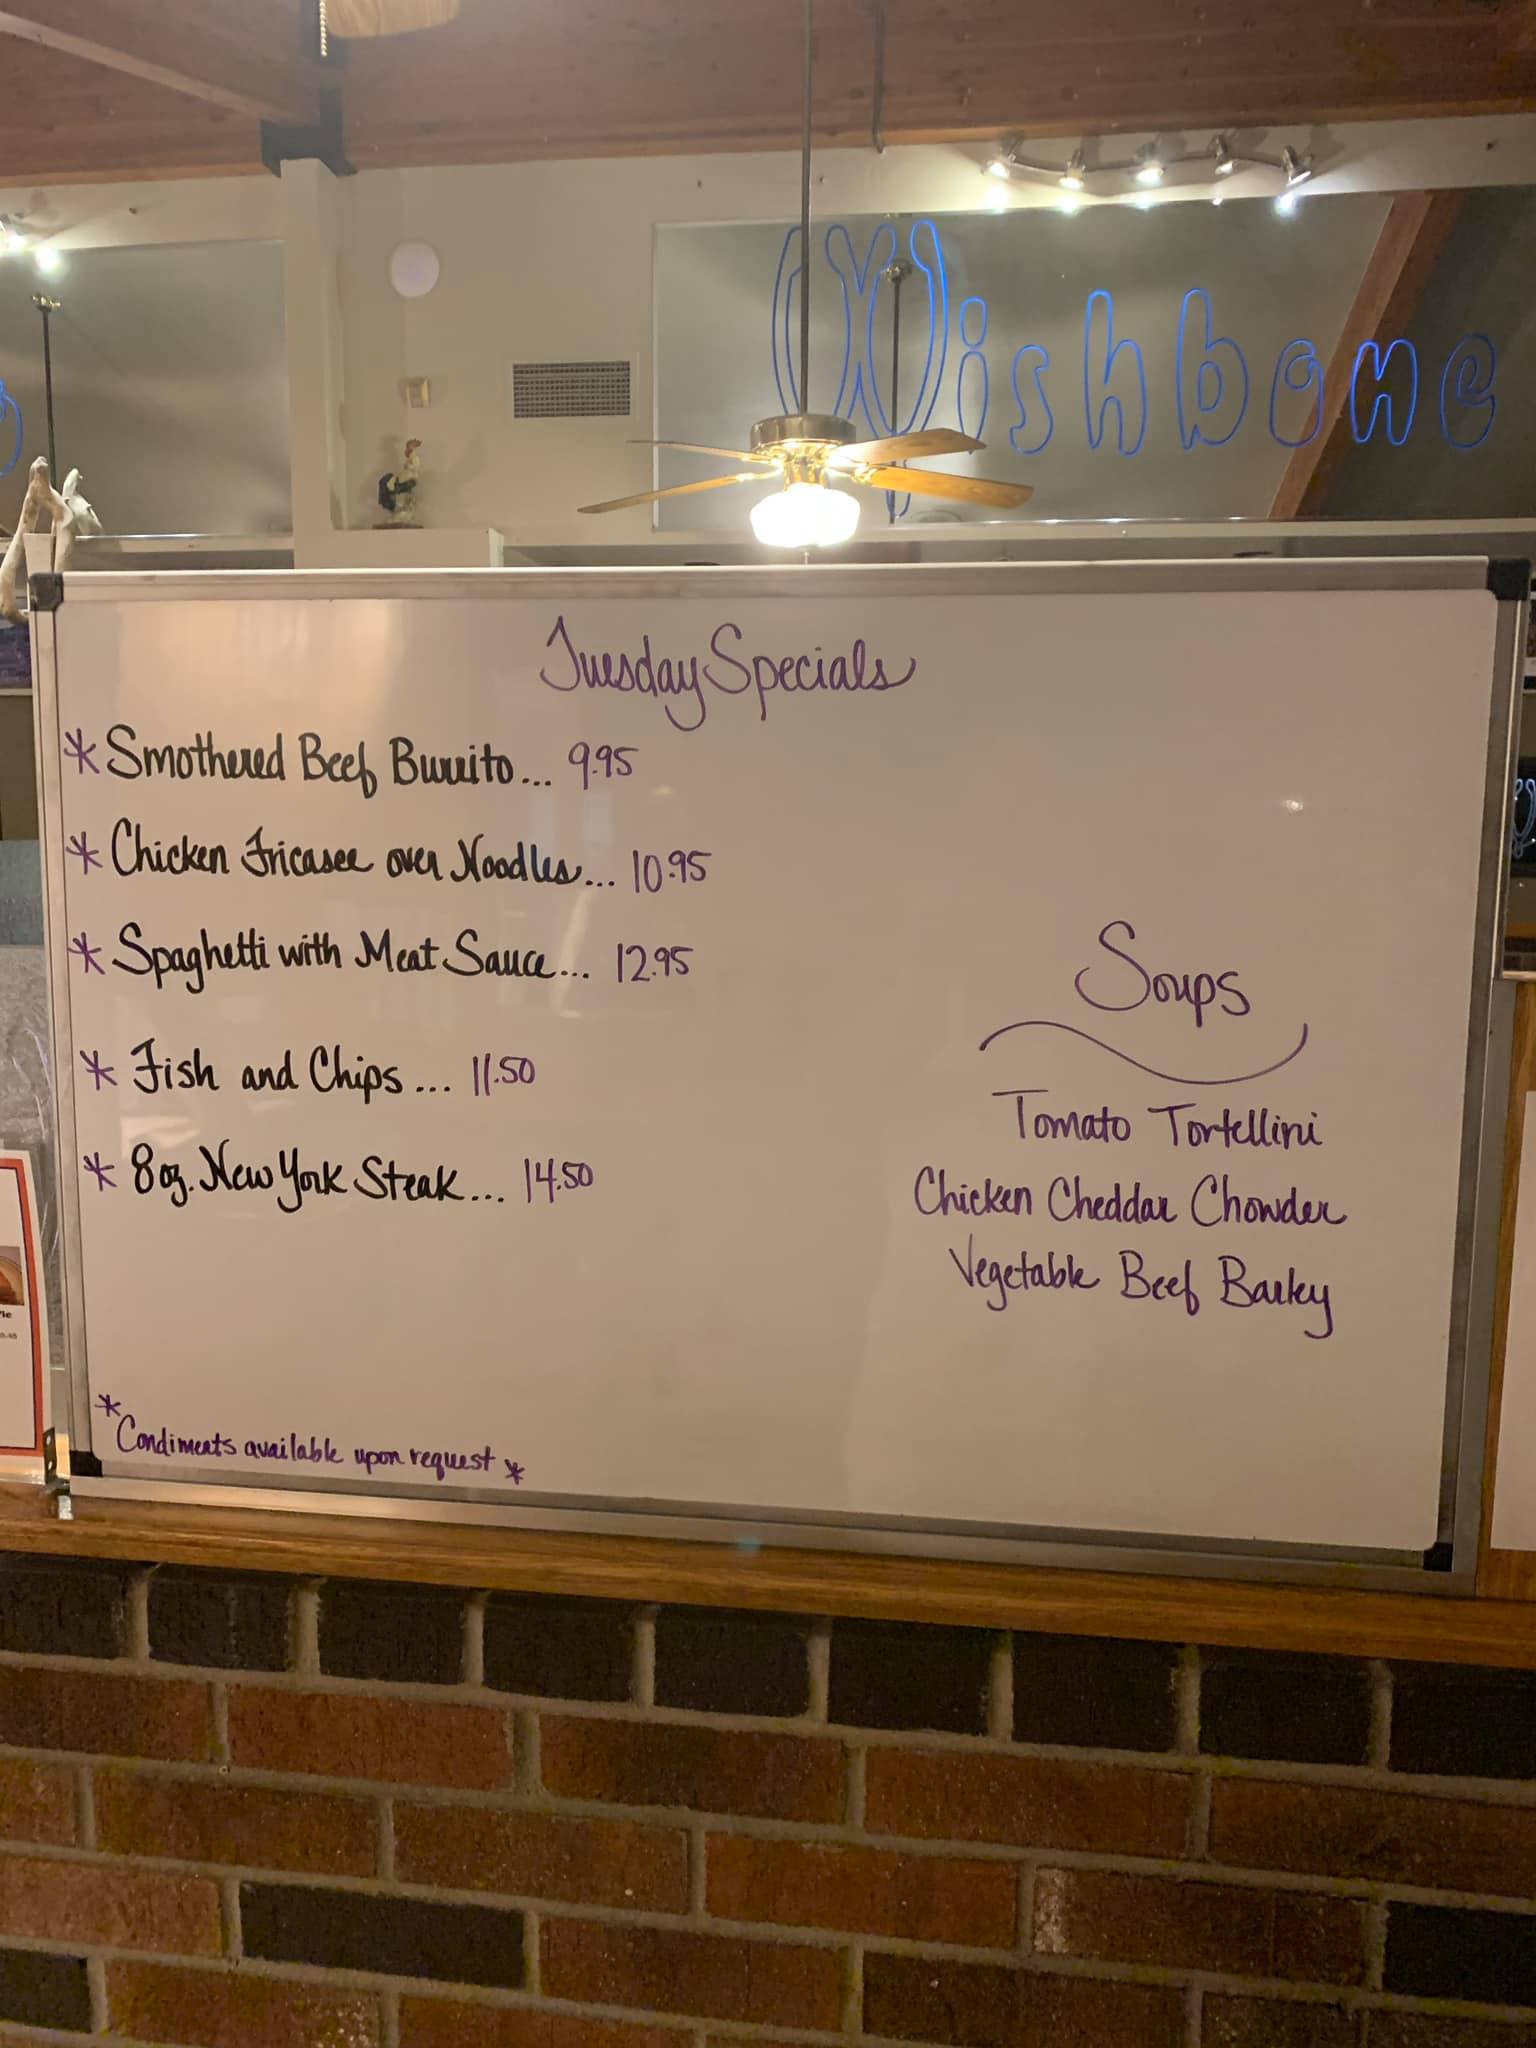 Wishbone
Tuesday Specials
* Smothered Beef Burrito... 9.95
* Chicken Fricasee over Noodles... 10.95
* Spaghetti with Meat Sauce... 12.95
* Fish and Chips... 11.50
* 8oz. New York Steak... 14.50
Soups
Tomato Tortellini
Chicken Cheddar Chowder
Vegetable Beef Barley
* Condiments available upon request *